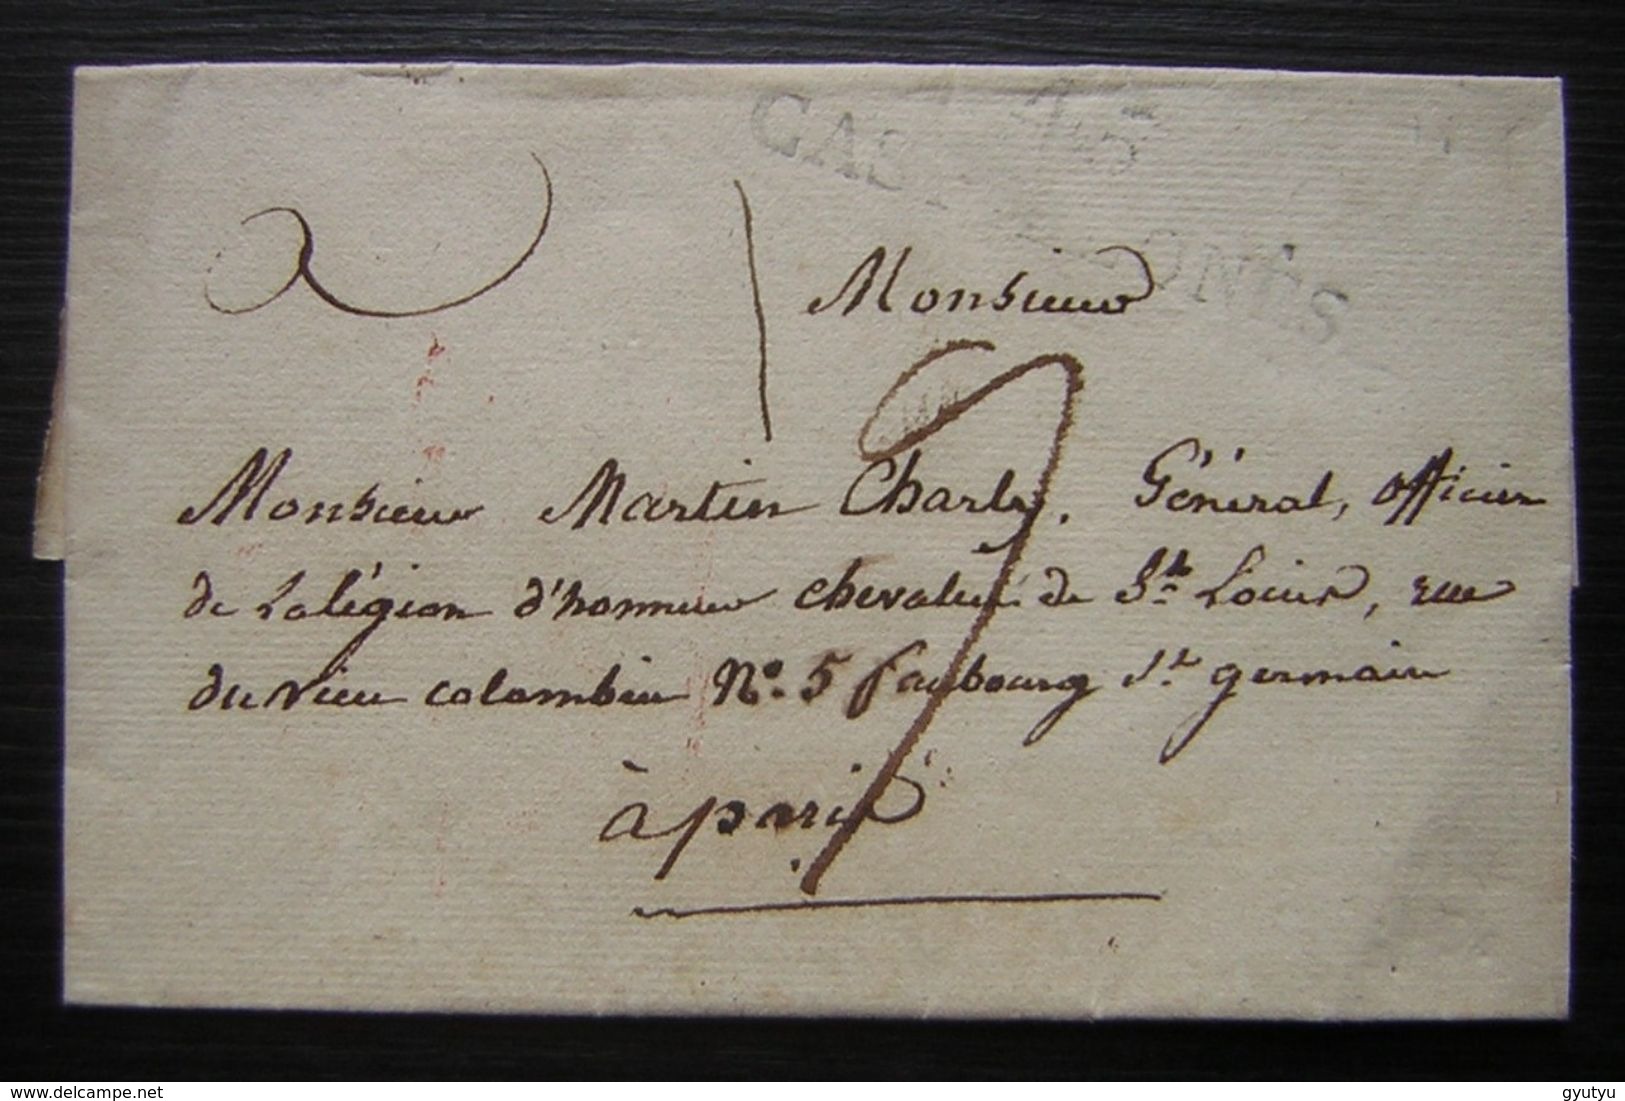 45
CAS ONÈS
Monsieur
Monsieur Martin Charly. Général, officier
de Lalégion d'honneur chevalier de St. Louis, rue
du vieu colombier No. 5 faubourg St. germain
à paris
delcampe.net
gyutyu